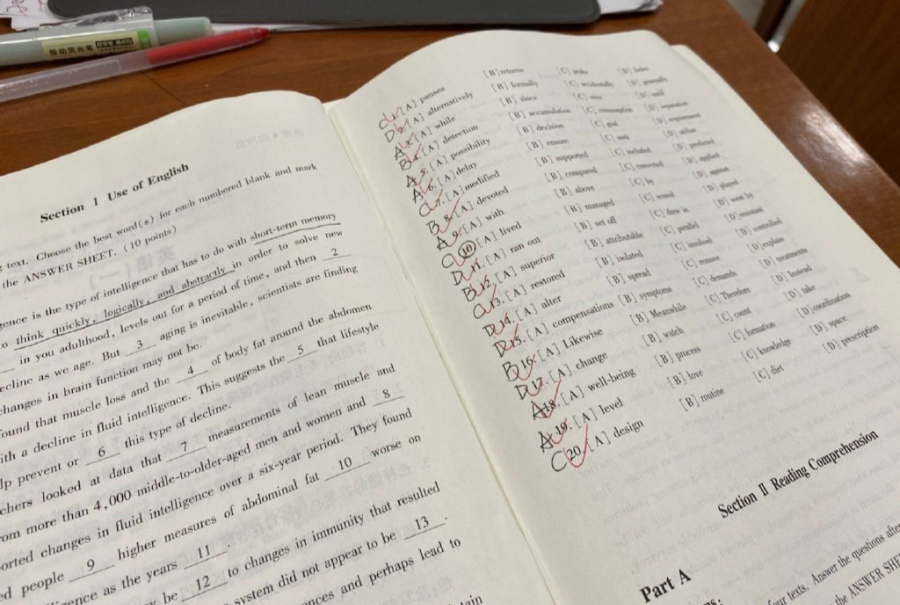 Section I Use of English
text. Choose the best word(s) for each numbered blank and mark
the ANSWER SHEET. (10 points)
gence is the type of intelligence that has to do with short-term memory
o think quickly, logically, and abstractly in order to solve new
in you adulthood, levels out for a period of time, and then 2
ecline as we age. But 3 aging is inevitable, scientists are finding
changes in brain function may not be.
found that muscle loss and the 4 of body fat around the abdomen
ith a decline in fluid intelligence. This suggests the 5 that lifestyle
lp prevent or 6 this type of decline.
chers looked at data that 7 measurements of lean muscle and
om more than 4,000 middle-to-older-aged men and women and 8
orted changes in fluid intelligence over a six-year period. They found
ed people 9 higher measures of abdominal fat 10 worse on
igence as the years 11 .
y be 12 to changes in immunity that resulted
system did not appear to be 13 .
nces and perhaps lead to
C 1. [A] pauses [B] returns [C] [D]
D 2. [A] alternatively [B] formally [C] accidentally [D] generally
A 3. [A] while [B] since [C] once [D] until
B 4. [A] detection [B] accumulation [C] consumption [D] separation
A 5. [A] possibility [B] decision [C] goal [D] requirement
A 6. [A] delay [B] ensure [C] seek [D] utilize
C 7. [A] modified [B] supported [C] included [D] predicted
B 8. [A] devoted [B] compared [C] converted [D] applied
A 9. [A] with [B] above [C] by [D]
C 10. [A] lived [B] managed [C] scored [D] played
D 11. [A] ran out [B] set off [C] drew in [D] went by
B 12. [A] superior [B] attributable [C] parallel [D] resistant
C 13. [A] restored [B] isolated [C] involved [D] controlled
D 14. [A] alter [B] spread [C] remove [D] explain
D 15. [A] compensations [B] symptoms [C] demands [D] treatments
B 16. [A] Likewise [B] Meanwhile [C] Therefore [D] Instead
D 17. [A] change [B] watch [C] count [D] take
A 18. [A] well-being [B] process [C] formation [D] coordination
A 19. [A] level [B] love [C] knowledge [D] space
C 20. [A] design [B] routine [C] diet [D] prescription
Section II Reading Comprehension
Part A
four texts. Answer the questions after
the ANSWER SHEE